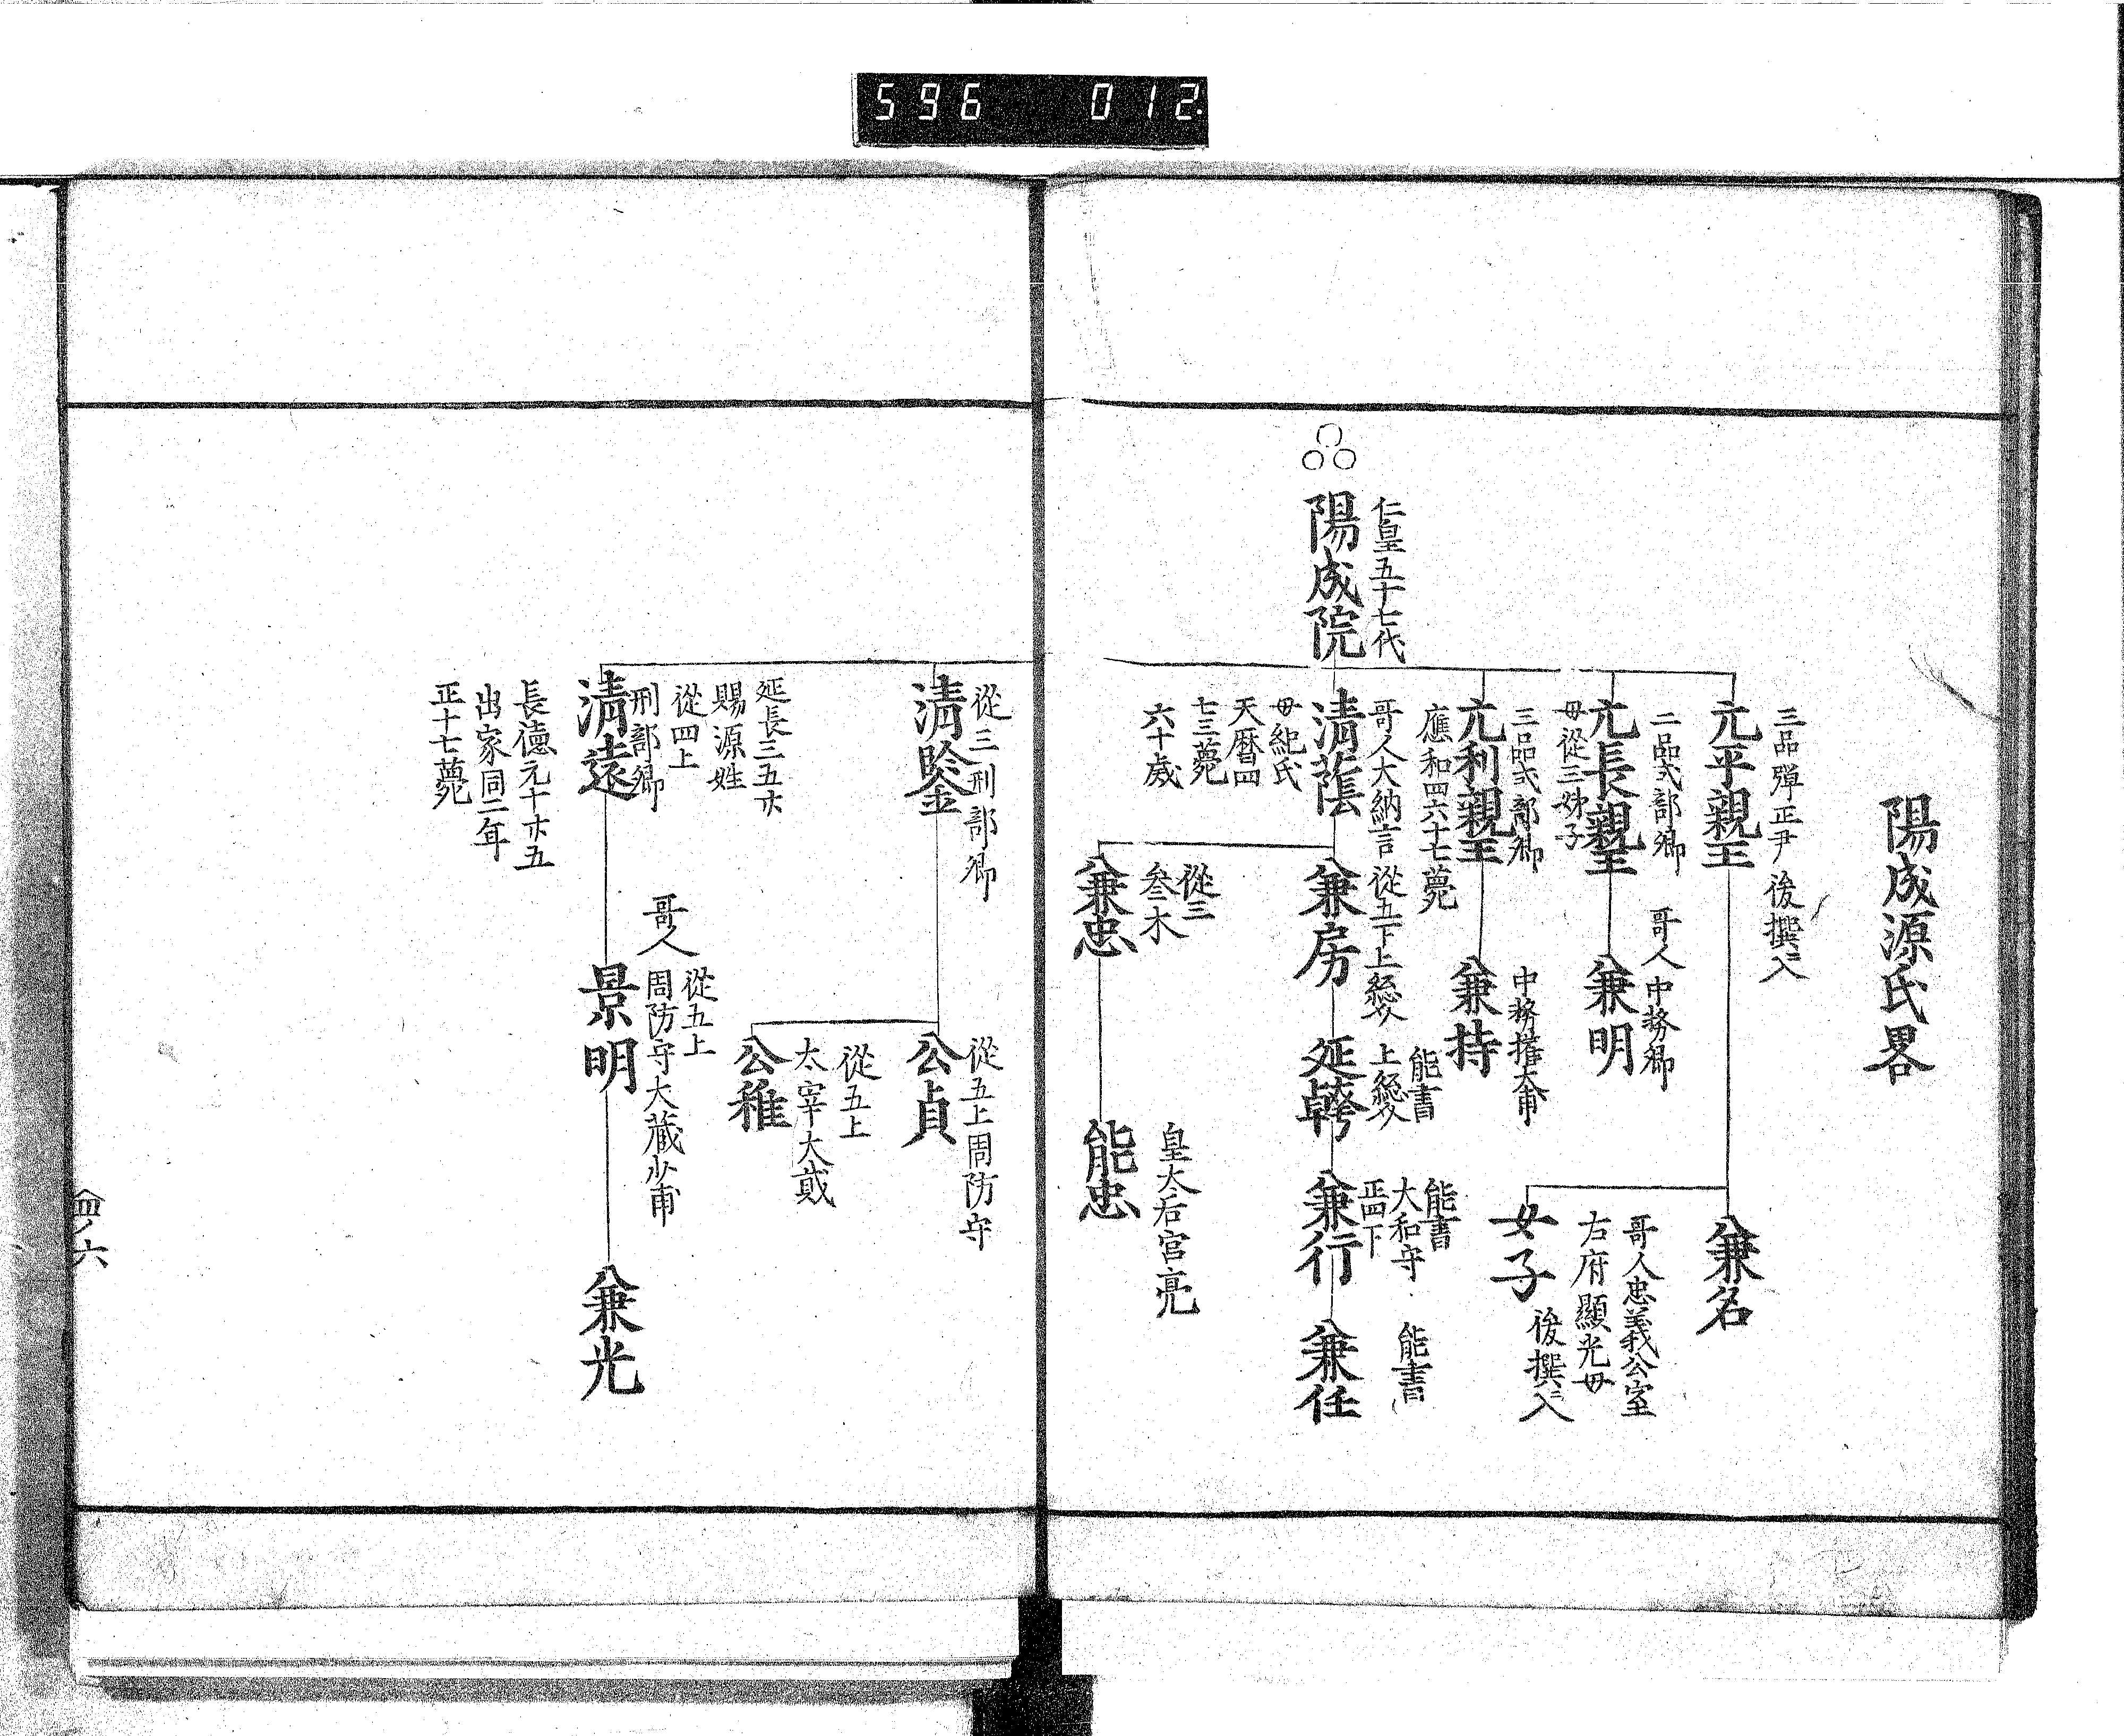 596 012
陽成源氏畧
仁皇五十七代
陽成院
三品彈正尹 後撰ニ入
元平親王
兼名
哥人忠義公室
右府顯光母
女子
後撰ニ入
二品式部卿
元長親王
母從三姊子
哥人 中務卿
兼明
三品式部卿
元利親王
應和四六十七薨
中務権大甫
兼持
哥人大納言
清蔭
母紀氏
天暦四
七三薨
六十歳
從五下上総介
兼房
能書
上総介
能書
大和守
正四下
兼行
能書
兼任
從三
叄木
兼忠
皇太后宮亮
能忠
從三刑部卿
清鑒
從五上周防守
公貞
從五上
太宰大貮
公稚
延長三五廿
賜源姓
從四上
刑部卿
清遠
長德元十廿五
出家同二年
正十七薨
哥人
從五上
周防守大蔵少甫
景明
兼光
四ノ六